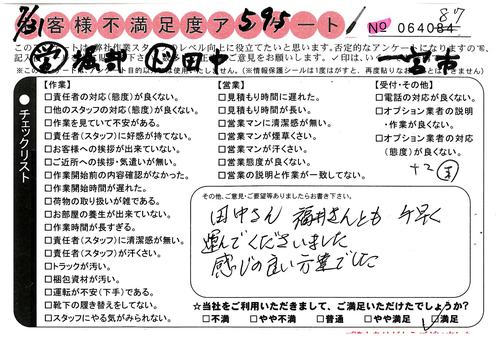 7/31 お客様不満足度アンケート 595 No 064084 87
このアンケートは弊社作業スタッフのレベル向上に役立てたいと思います。否定的なアンケートになりますので、
記入
※このアンケート用紙は、(※情報保護シールは1度はがすと、再度貼りなおすことはできません)
田中 一宮市
●チェックリスト
【作業】
□責任者の対応(態度)が良くない。
□他のスタッフの対応(態度)が良くない。
□作業を見ていて不安がある。
□責任者(スタッフ)に好感が持てない。
□お客様への挨拶が出来ていない。
□ご近所への挨拶・気遣いが無い。
□作業開始前の内容確認がなかった。
□作業開始時間が遅れた。
□荷物の取り扱いが雑である。
□お部屋の養生が出来ていない。
□作業時間が長すぎる。
□責任者(スタッフ)に清潔感が無い。
□責任者(スタッフ)が汗くさい。
□トラックが汚い。
□梱包資材が汚い。
□運転が不安(下手)である。
□靴下の履き替えをしてない。
□スタッフにやる気がみられない。
【営業】
□見積もり時間に遅れた。
□見積もり時間が長い。
□営業マンに清潔感が無い。
□営業マンが煙草くさい。
□営業マンが汗くさい。
□営業態度が良くない。
□営業の説明と作業が一致してない。
【受付・その他】
□電話の対応が良くない。
□オプション業者の説明
・作業が良くない。
□オプション業者の対応
(態度)が良くない。
その他、ご意見・ご要望等ありましたらお書き下さい。
田中さん 福井さんとも 手早く
運んでくださいました
感じの良い方達でした
☆当社をご利用いただきまして、ご満足いただけたでしょうか?
□不満 □やや不満 □普通 □やや満足 □満足